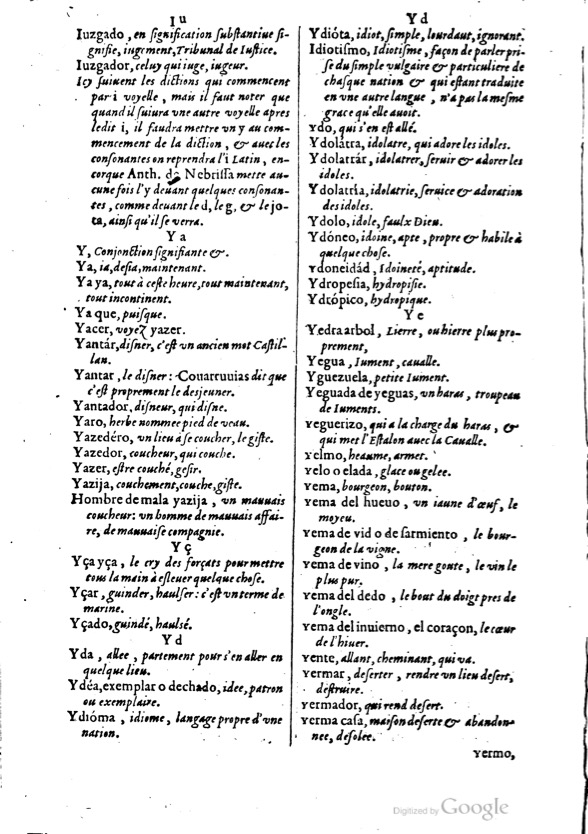 Iu
Iuzgado, en signification substantiue si-
gnifie, iugement, Tribunal de Iustice.
Iuzgador, celuy qui iuge, iugeur.
Icy suiuent les dictions qui commencent
par i voyelle, mais il faut noter que
quand il suiura une autre voyelle apres
ledit i, il faudra mettre vn y au com-
mencement de la diction, & auec les
consonantes on reprendra l'i Latin, en-
corque Anth. de Nebrissa mette au-
cunefois l'y deuant quelques consonan-
tes, comme deuant le d, le g, & le jo-
ta, ainsi qu'il se verra.
Y a
Y, Conjonction signifiante &.
Ya, ia, desia, maintenant.
Ya ya, tout à ceste heure, tout maintenant,
tout incontinent.
Ya que, puisque.
Yacer, voyez yazer.
Yantár, disner, c'est vn ancien mot Castil-
lan.
Yantar, le disner: Couarruuias dit que
c'est proprement le desjeuner.
Yantador, disneur, qui disne.
Yaro, herbe nommee pied de veau.
Yazedéro, vn lieu à se coucher, le giste.
Yazedor, coucheur, qui couche.
Yazer, estre couché, gesir.
Yazija, couchement, couche, giste.
Hombre de mala yazija, vn mauuais
coucheur: vn homme de mauuais affai-
re, de mauuaise compagnie.
Y ç
Yça yça, le cry des forçats pour mettre
tous la main à esleuer quelque chose.
Yçar, guinder, haulser: c'est vn terme de
marine.
Yçado, guindé, haulsé.
Y d
Yda, allee, partement pour s'en aller en
quelque lieu.
Ydéa, exemplar o dechado, idee, patron
ou exemplaire.
Ydióma, idiome, langage propre d'vne
nation.
Y d
Ydióta, idiot, simple, lourdaut, ignorant.
Idiotismo, Idiotisme, façon de parler pri-
se du simple vulgaire & particuliere de
chasque nation & qui estant traduite
en vne autre langue, n'a pas la mesme
grace qu'elle auoit.
Ydo, qui s'en est allé.
Ydolátra, idolatre, qui adore les idoles.
Ydolatrár, idolatrer, seruir & adorer les
idoles.
Ydolatria, idolatrie, seruice & adoration
des idoles.
Ydolo, idole, faulx Dieu.
Ydóneo, idoine, apte, propre & habile à
quelque chose.
Ydoneidád, Idoineté, aptitude.
Ydropesia, hydropisie.
Ydrópico, hydropique.
Y e
Yedra arbol, Lierre, ou hierre plus pro-
prement,
Yegua, Iument, caualle.
Yguezuela, petite Iument.
Yeguada de yeguas, vn haras, troupeau
de Iuments.
Yeguerizo, qui a la charge du haras, &
qui met l'Estalon auec la Caualle.
Yelmo, heaume, armet.
Yelo o elada, glace ou gelee.
Yema, bourgeon, bouton.
Yema del hueuo, vn iaune d'œuf, le
moyeu.
Yema de vid o de sarmiento, le bour-
geon de la vigne.
Yema de vino, la mere goute, le vin le
plus pur.
Yema del dedo, le bout du doigt pres de
l'ongle.
Yema del inuierno, el coraçon, le cœur
de l'hiuer.
Yente, allant, cheminant, qui va.
Yermar, deserter, rendre vn lieu desert,
destruire.
Yermador, qui rend desert.
Yerma casa, maison deserte & abandon-
nee, desolee.
Yermo,
Digitized by Google